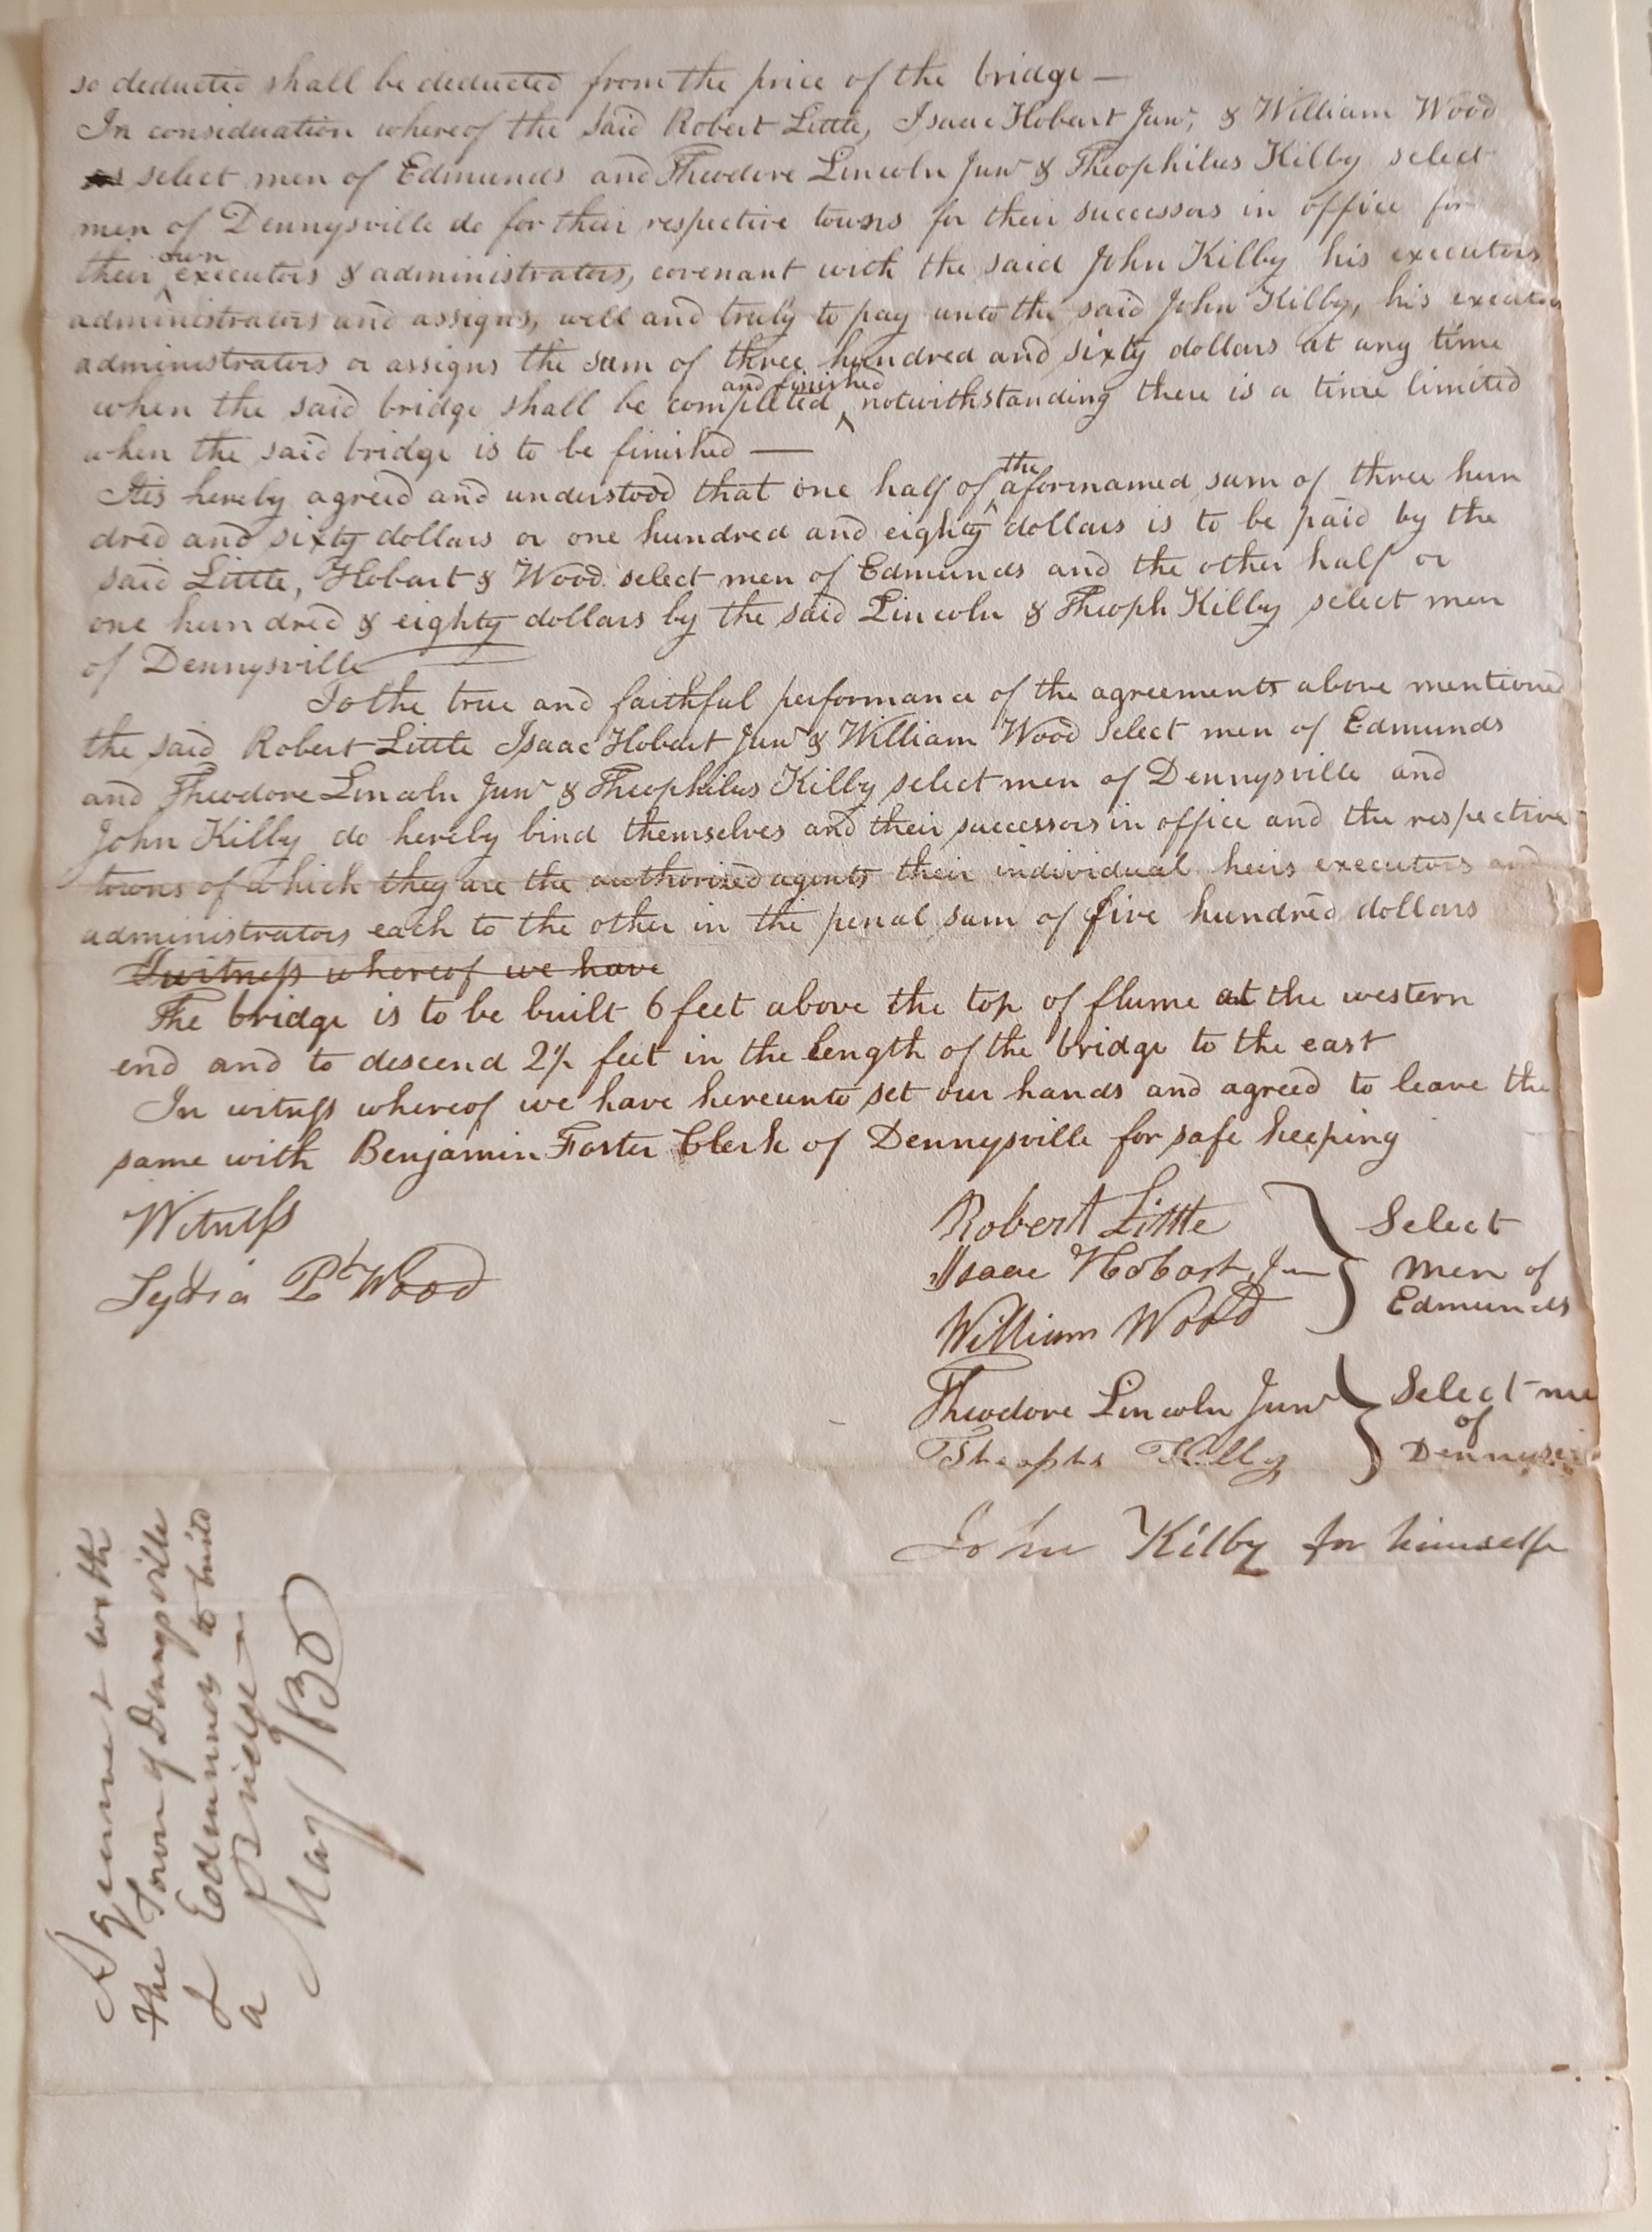 so deducted shall be deducted from the price of the bridge —
In consideration whereof the said Robert Little, Isaac Hobart Junr, & William Wood
select men of Edmunds and Theodore Lincoln Junr & Theophilus Kilby select
men of Dennysville do for their respective towns for their successors in office for
their own executors & administrators, covenant with the said John Kilby his executors
administrators and assigns, well and truly to pay unto the said John Kilby, his executors
administrators or assigns the sum of three hundred and sixty dollars at any time
when the said bridge shall be completed and finished notwithstanding there is a time limited
when the said bridge is to be finished —
Itis hereby agreed and understood that one half of the aforenamed sum of three hun
dred and sixty dollars or one hundred and eighty dollars is to be paid by the
said Little, Hobart & Wood select men of Edmunds and the other half or
one hundred & eighty dollars by the said Lincoln & Theoph Kilby select men
of Dennysville
To the true and faithful performance of the agreements above mentioned
the said Robert Little Isaac Hobart Junr & William Wood Select men of Edmunds
and Theodore Lincoln Junr & Theophilus Kilby select men of Dennysville and
John Kilby do hereby bind themselves and their successors in office and the respective
towns of which they are the authorized agents their individual heirs executors and
administrators each to the other in the penal sum of five hundred dollars
I witness whereof we have
The bridge is to be built 6 feet above the top of flume at the western
end and to descend 2½ feet in the length of the bridge to the east
In witness whereof we have hereunto set our hands and agreed to leave the
same with Benjamin Foster Clerk of Dennysville for safe keeping
Witness
Lydia Pt Wood
Robert Little
Isaac Hobart, Jun
William Wood
Select
men of
Edmunds
Theodore Lincoln Junr
Theophs Kilby
Select me
of
Dennysvi
John Kilby for himself
Agreement with
the Town of Dennysville
& Edmunds to build
a Bridge
May 1830